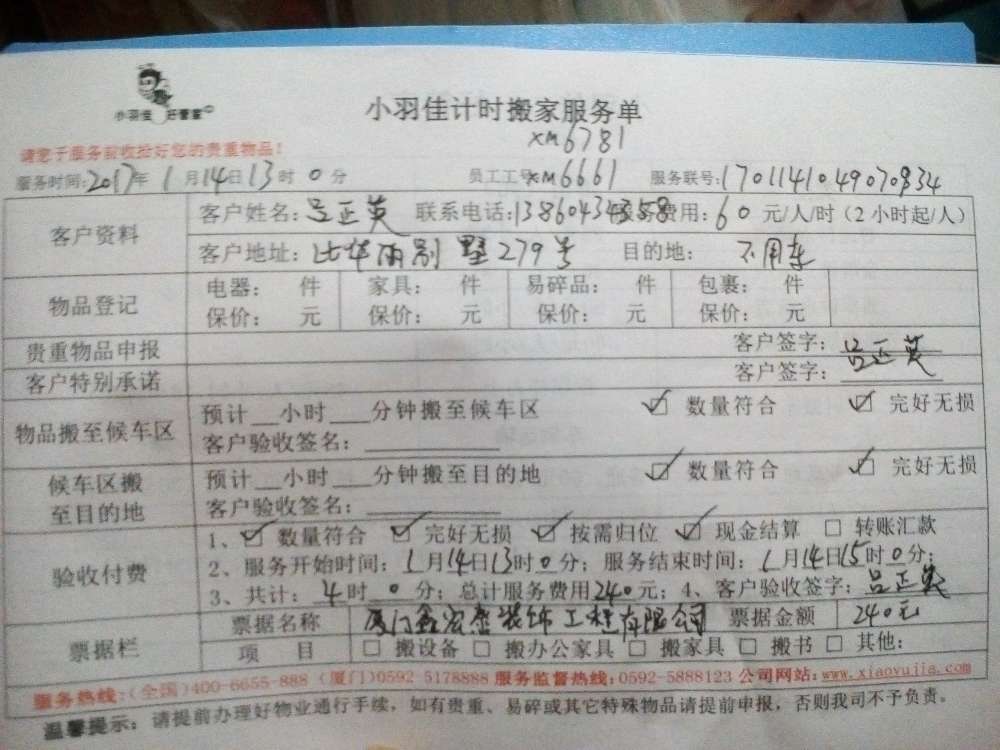 小羽佳 好管家
小羽佳计时搬家服务单
XM6781
请您于服务前收拾好您的贵重物品！
服务时间：2017年 1月14日13时0分 员工工号XM6661 服务联号：1701141049070834
客户资料 客户姓名：吕正英 联系电话： 费用：60元/人/时（2小时起/人）
客户地址：比华丽别墅279号 目的地：不用车
物品登记 电器： 件 家具： 件 易碎品： 件 包裹： 件
保价： 元 保价： 元 保价： 元 保价： 元
贵重物品申报 客户签字：吕正英
客户特别承诺 客户签字：
物品搬至候车区 预计__小时___分钟搬至候车区 ☑ 数量符合 ☑ 完好无损
客户验收签名：
候车区搬至目的地 预计__小时___分钟搬至目的地 ☑ 数量符合 ☑ 完好无损
客户验收签名：
验收付费 1、☑ 数量符合 ☑ 完好无损 ☑ 按需归位 ☑ 现金结算 □ 转账汇款
2、服务开始时间：1月14日13时0分；服务结束时间：1月14日15时0分；
3、共计：4时0分；总计服务费用240元；4、客户验收签字：吕正英
票据栏 票据名称 厦门鑫宏盛装饰工程有限公司 票据金额 240元
项 目 □ 搬设备 □ 搬办公家具 □ 搬家具 □ 搬书 □ 其他：
服务热线：（全国）400-6655-888（厦门）0592 5178888 服务监督热线：0592-5888123 公司网站：www.xiaoyujia.com
温馨提示：请提前办理好物业通行手续，如有贵重、易碎或其它特殊物品请提前申报，否则我司不予负责。